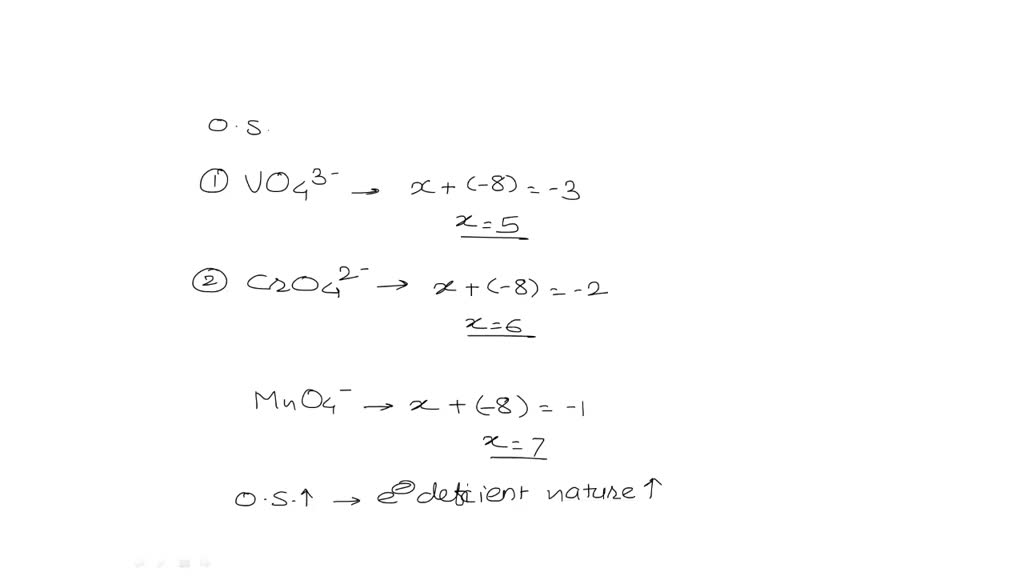 O.S.
① VO₄³⁻ → x + (-8) = -3
x = 5
② CrO₄²⁻ → x + (-8) = -2
x = 6
MnO₄⁻ → x + (-8) = -1
x = 7
O.S.↑ → e⊖ deficient nature ↑